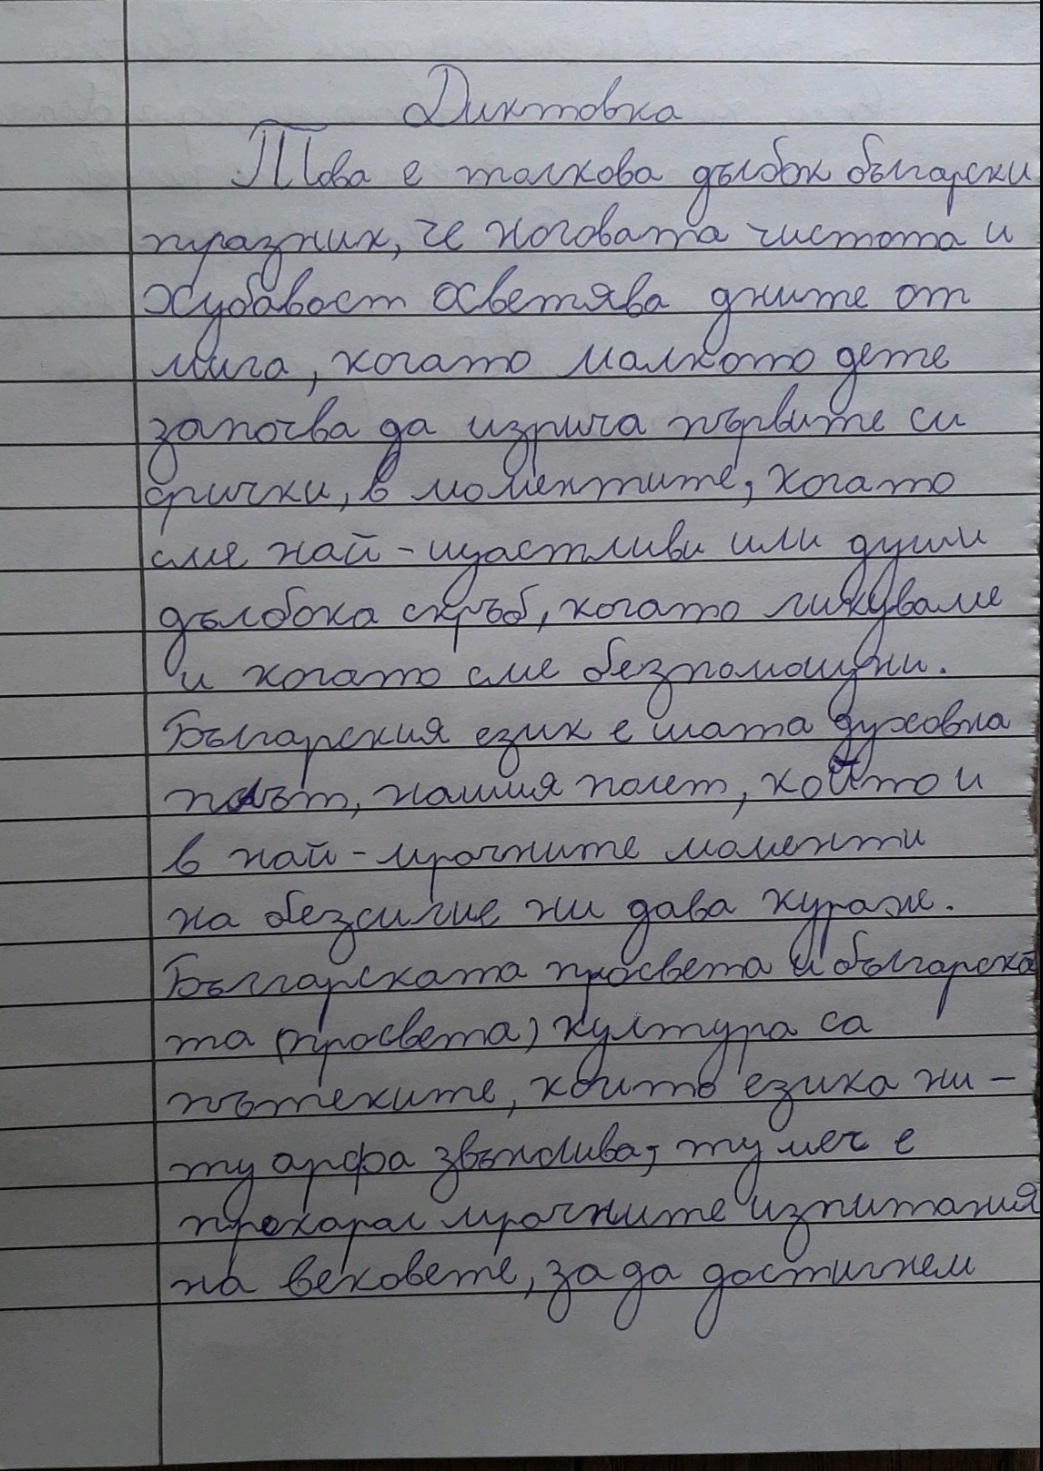 Диктовка
Това е толкова дълбок български
празник, че неговата чистота и
хубавост осветява дните от
мига, когато малкото дете
започва да изрича първите си
срички, в моментите, когато
сме най-щастливи или души
дълбока скръб, когато ликуваме
и когато сме безпомощни.
Българския език е шата духовна
плът, нашия полет, който и
в най-мрачните моменти
на безсилие ни дава кураж.
Българската просвета и българска
та (просвета) култура са
пътеките, които езика ни -
ту арфа звънлива, ту меч е
прокарал мрачните изпитания
на вековете, за да достигнем